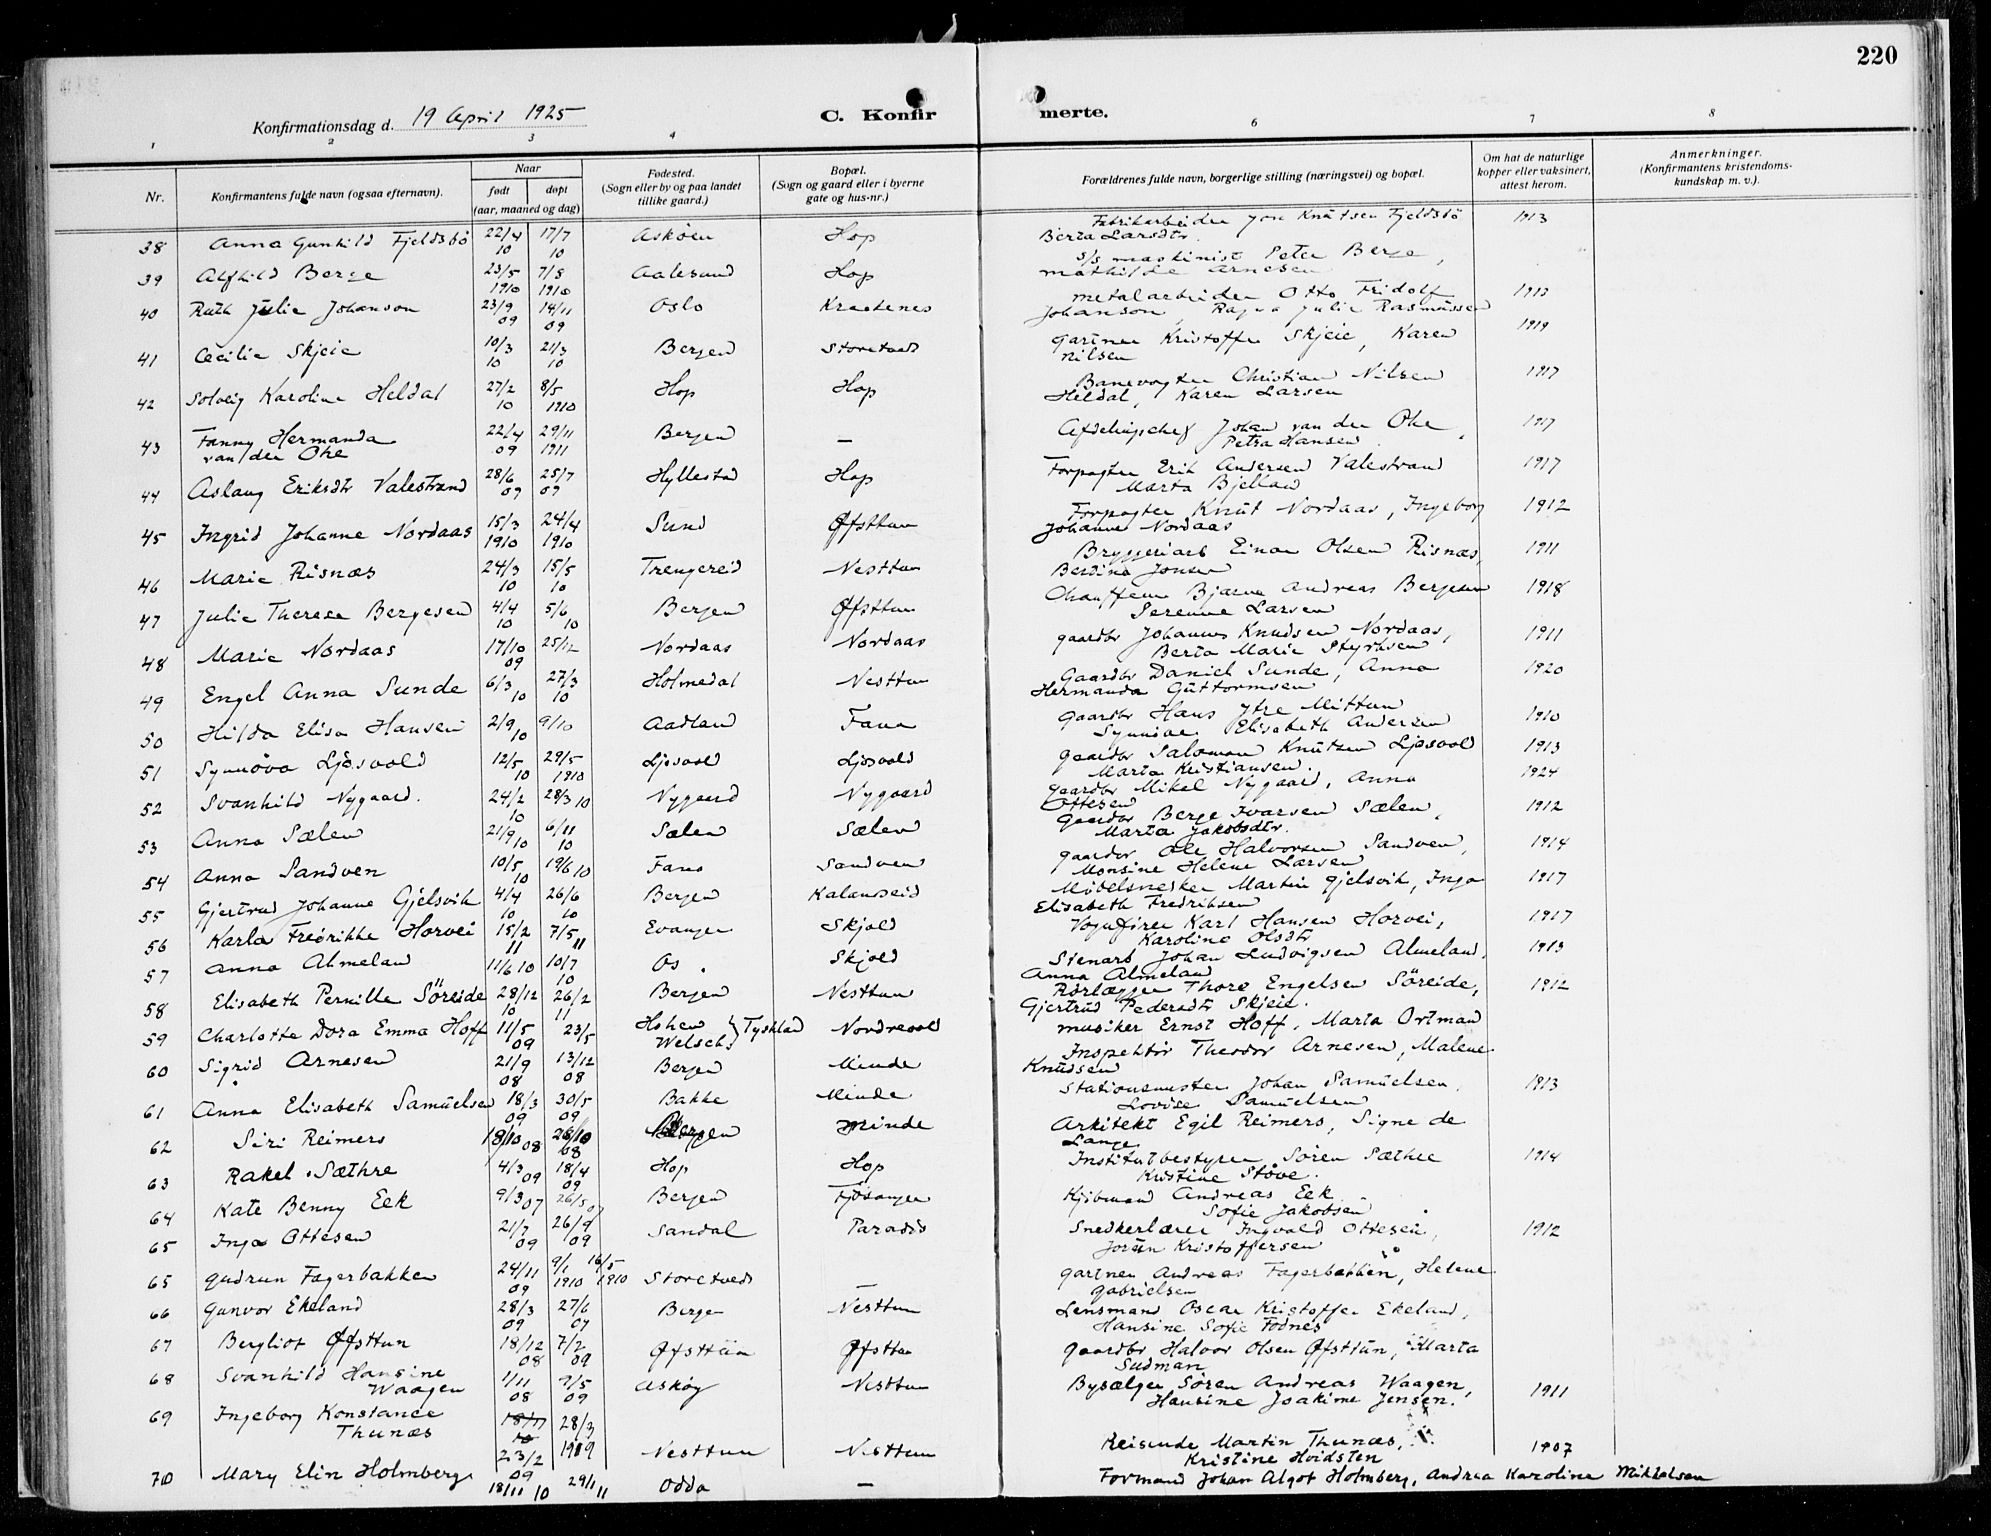 220
Konfirmationsdag d. 19 April 1925
C. Konfir merte.
1 2 3 4 6 7 8
Nr. Konfirmantens fulde navn (ogsaa efternavn). Naar født døpt (aar, maaned og dag) Fødested. (Sogn eller by og paa landet tillike gaard.) Bopæl. (Sogn og gaard eller i byerne gate og hus-nr.) Forældrenes fulde navn, borgerlige stilling (næringsvei) og bopæl. Om hat de naturlige kopper eller vaksinert, attest herom. Anmerkninger. (Konfirmantens kristendoms-kundskap m. v.).
38 Anna Gunhild Fjeldsbø 22/4 10 17/7 10 Askøen Hop Fabrikarbeider Jon Knutsen Fjeldsbø Berta Larsdtr. 1913
39 Alfhild Berge 23/5 1910 7/8 1910 Aalesund Hop s/s maskinist Peter Berge, Mathilde Arnesen
40 Ruth Julie Johanson 23/9 09 14/11 09 Oslo Kraakenes metalarbeider Otto Fridolf Johanson, Julie Rasmussen 1913
41 Cecilie Skjeie 10/3 10 21/3 10 Bergen Storetvedt Gartner Kristoffer Skjeie, Karen Nilsen 1919
42 Solveig Karoline Heldal 27/2 10 8/5 1910 Hop Hop Banevogter Christian Nilsen Heldal, Karen Larsen 1917
43 Fanny Hermanda van der Ohe 22/4 09 29/11 1911 Bergen — Afdelingschef Johan van der Ohe, Petra Hansen 1917
44 Aslaug Eriksdtr Valestrand 28/6 09 25/7 09 Hyllestad Hop Forpagter Erik Andersen Valestrand Marta Bjelland 1917
45 Ingrid Johanne Nordaas 15/3 1910 24/4 1910 Sund Øfsttun Forpagter Knut Nordaas, Ingeborg Johanne Nordaas 1912
46 Marie Risnæs 24/3 10 15/5 10 Trengereid Nesttun Bryggeriarb Einar Olsen Risnæs, Berdine Jonsen 1911
47 Julie Therese Bergesen 4/4 10 5/6 10 Bergen Øfsttun Chauffeur Bjarne Andreas Bergesen Serenne Larsen 1918
48 Marie Nordaas 17/10 09 25/12 Nordaas Nordaas gaardbr Johannes Knudsen Nordaas, Berta Marie Styrksen 1911
49 Engel Anna Sunde 6/3 10 27/3 10 Holmedal Nesttun Gaardbr Daniel Sunde, Anna Hermanda Guttormsen 1920
50 Hilda Elisa Hansen 2/9 10 9/10 Aadland Fana gaardbr Hans Ytre Mittun Synnöve Elisabeth Andersen 1910
51 Synnöva Ljosvold 12/5 10 29/5 1910 Ljosvold Ljosvold gaardbr Salomon Knutsen Ljosvold Marta Kristiansen. 1913
52 Svanhild Nygaard. 24/2 10 28/3 10 Nygaard Nygaard gaardbr Mikel Nygaard, Anna Ottesen 1924
53 Anna Sælen 21/9 10 6/11 10 Sælen Sælen gaardbr Berge Ivarsen Sælen, Marta Jakobsdtr. 1912
54 Anna Sandven 10/5 10 19/6 10 Fana Sandven gaardbr Ole Halvorsen Sandven, Monsine Helene Larsen 1914
55 Gjertrud Johanne Gjelsvik 4/4 10 26/6 10 Bergen Kalandseid Möbelsnedker Martin Gjelsvik, Inga Elisabeth Fredriksen 1917
56 Karla Fredrikke Horvei 15/2 11 7/5 11 Evanger Skjold Vognfører Karl Hansen Horvei, Karoline Olsdtr 1917
57 Anna Almeland 11/6 10 10/7 10 Os. Skjold Stenarb Johan Ludvigsen Almeland, Anna Almeland 1913
58 Elisabeth Pernille Söreide 28/12 10 26/2 11 Bergen Nesttun Rørlægger Thore Engelsen Söreide, Gjertrud Pedersdtr Skjeie. 1912
59 Charlotte Dora Emma Hoff 11/5 09 23/5 Hohen Welsch } Tyskland Nordrevold musiker Ernst Hoff, Marta Ortman
60 Sigrid Arnesen 21/9 08 13/12 08 Bergen Minde Inspektör Theodor Arnesen, Malene Knudsen
61 Anna Elisabeth Samüelsen 18/3 09 30/5 09 Bakke Minde Stationsmester Johan Samüelsen, Lovise Samüelsen 1913
62 Siri Reimers 18/10 08 26/10 08 Bergen Minde Arkitekt Egil Reimers, Signe de Lange
63 Rakel Sæthre 4/3 09 18/4 09 Hop Hop Institutbestyrer Søren Sæthre Kristine Støve. 1914
64 Kate Benny Eek 9/3 07 26/5 07 Bergen Fjösanger Kjöbmand Andreas Eek Sofie Jakobsen
65 Inga Ottesen 21/7 09 26/9 09 Sandal Paradis Snedkerlærer Ingvald Ottesen, Jorün Kristoffersen 1912
65 Gudrun Fagerbakken 24/11 09 9/1 1910 16/5 1910 Storetvedt gartner Andreas Fagerbakken, Helene Gabrielsen
66 Gunvor Ekeland 28/3 09 27/6 07 Bergen Nesttun Lensmand Oscar Kristoffer Ekeland, Hansine Sofie Fodnes
67 Bergliot Øfsttun 18/12 08 7/2 09 Øfsttün Øfsttun gaardbr Halvor Olsen Øfsttün, Marta Sudman
68 Svanhild Hansine Waagen 1/11 08 9/5 09 Askøy Nesttun Bysælger Søren Andreas Waagen, Hansine Joakime Jensen. 1911
69 Ingeborg Konstance Thunæs 18/11 10 23/2 09 28/3 1909 Nesttun Nesttun Reisende Martin Thunæs, Kristine Hvidsten 1907
70 Mary Elin Holmberg 18/11 10 29/1 11 Odda — Formand Johan Algot Holmberg, Andrea Karoline Mikkelsen